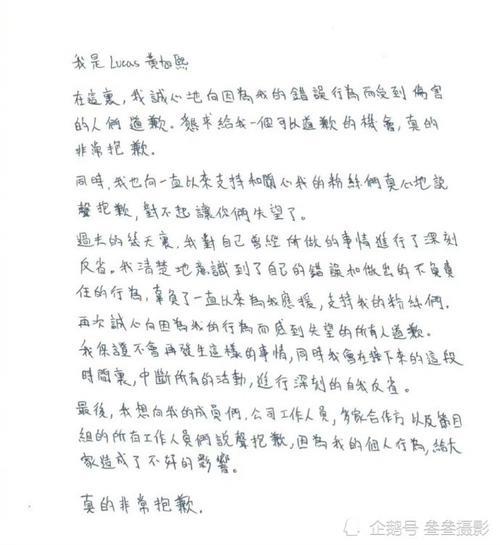 我是Lucas 黃旭熙
在這裏，我誠心地向因為我的錯誤行為而受到傷害
的人們道歉。懇求給我一個可以道歉的機會，真的
非常抱歉.
同時，我也向一直以來支持和關心我的粉絲們真心地說
聲抱歉，對不起讓你們失望了。
過去的幾天裏，我對自己曾經所做的事情進行了深刻
反省。我清楚地意識到了自己的錯誤和做出的不負責
任的行為，辜負了一直以來為我應援，支持我的粉絲們.
再次誠心向因為我的行為而感到失望的所有人道歉。
我保證不會再發生這樣的事情，同時我會在接下來的這段
時間裏，中斷所有的活動，進行深刻的自我反省。
最後，我想向我的成員們，公司工作人員，多家合作方以及節目
組的所有工作人員們說聲抱歉，因為我的個人行為，給大
家造成了不好的影響。
真的非常抱歉.
企鹅号 叁叁摄影